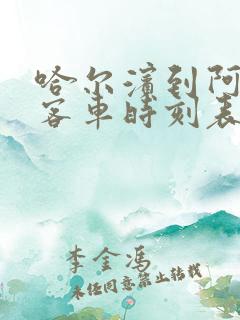 哈尔滨到阿
客车时刻表
李金冯
未经同意禁止转载